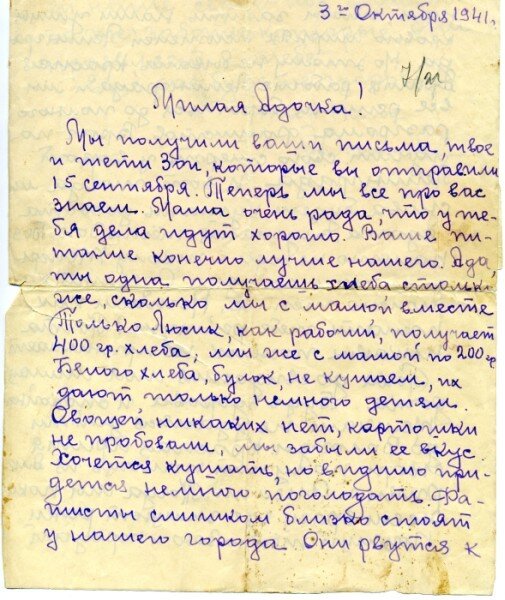 3го Октября 1941г.
Милая Адочка!
Мы получили ваши письма, твое
и тети Зои, которые вы отправили
15 сентября. Теперь мы все про вас
знаем. Мама очень рада, что у те-
бя дела идут хорошо. Ваше пи-
тание конечно лучше нашего. Ада,
ты одна получаешь хлеба столько
же, сколько мы с мамой вместе
Только Люсик, как рабочий, получает
400 гр. хлеба, мы же с мамой по 200 гр.
Белого хлеба, булок, не кушаем, их
дают только немного детям.
Овощей никаких нет, картошки
не пробовали, мы забыли ее вкус.
Хочется кушать, но видимо при-
дется немного поголодать. Фа-
шисты слишком близко стоят
у нашего города. Они рвутся к